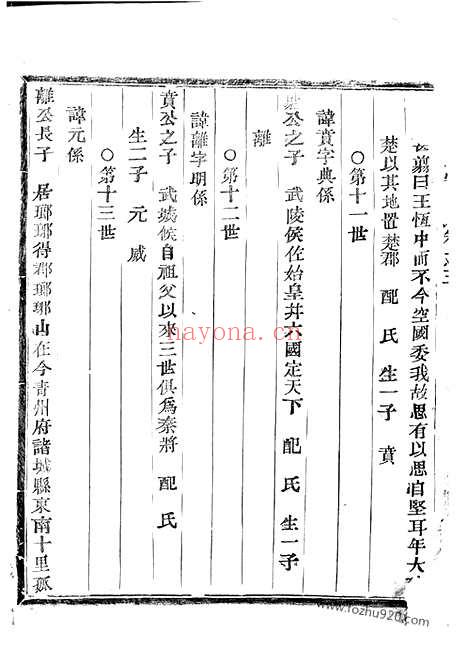 翦曰王恆中而不今空國委我故思有以思自堅耳年大
楚以其地置楚郡 配 氏 生一子 賁
○第十一世
諱賁字典係
公之子 武陵侯佐始皇并六國定天下 配 氏 生一子
離
○第十二世
諱離字明係
賁公之子 武城侯自祖父以來三世俱爲秦將 配 氏
生二子 元 威
○第十三世
諱元係
離公長子 居瑯琊得郡瑯琊山在今青州府諸城縣東南十里孤
nayona.cn
www.fozhu920.com